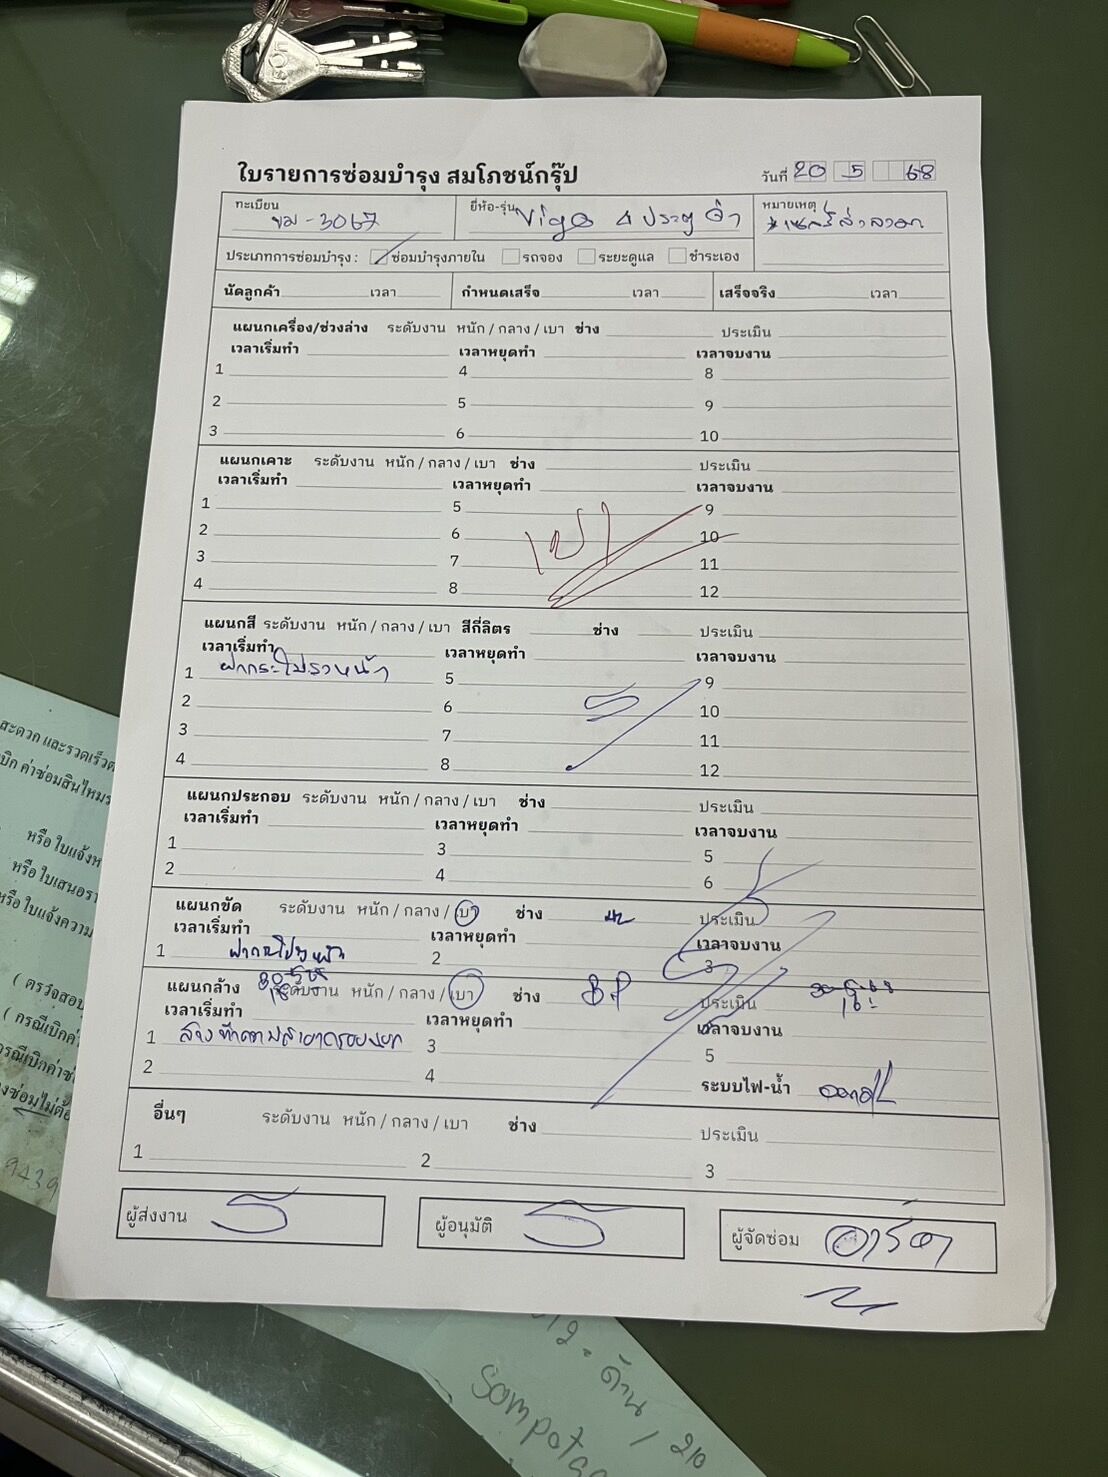 ใบรายการซ่อมบำรุง สมโภชน์กรุ๊ป
วันที่ 20 5 68
ทะเบียน ขม-3067
ยี่ห้อ-รุ่น Vigo 4 ประตู ดำ
หมายเหตุ
ประเภทการซ่อมบำรุง : ซ่อมบำรุงภายใน รถจอง ระยะดูแล ชำระเอง
นัดลูกค้า เวลา กำหนดเสร็จ เวลา เสร็จจริง เวลา
แผนกเครื่อง/ช่วงล่าง ระดับงาน หนัก / กลาง / เบา ช่าง ประเมิน
เวลาเริ่มทำ เวลาหยุดทำ เวลาจบงาน
1 4 8
2 5 9
3 6 10
แผนกเคาะ ระดับงาน หนัก / กลาง / เบา ช่าง ประเมิน
เวลาเริ่มทำ เวลาหยุดทำ เวลาจบงาน
1 5 9
2 6 10
3 7 11
4 8 12
แผนกสี ระดับงาน หนัก / กลาง / เบา สีกี่ลิตร ช่าง ประเมิน
เวลาเริ่มทำ เวลาหยุดทำ เวลาจบงาน
1 ฝากระโปรงหน้า 5 9
2 6 10
3 7 11
4 8 12
แผนกประกอบ ระดับงาน หนัก / กลาง / เบา ช่าง ประเมิน
เวลาเริ่มทำ เวลาหยุดทำ เวลาจบงาน
1 3 5
2 4 6
แผนกขัด ระดับงาน หนัก / กลาง / เบา ช่าง ประเมิน
เวลาเริ่มทำ เวลาหยุดทำ เวลาจบงาน
1 ฝากระโปรงหน้า 2 3
แผนกล้าง ระดับงาน หนัก / กลาง / เบา ช่าง ประเมิน
เวลาเริ่มทำ เวลาหยุดทำ เวลาจบงาน
1 3 5
2 4 ระบบไฟ-น้ำ
อื่นๆ ระดับงาน หนัก / กลาง / เบา ช่าง ประเมิน
1 2 3
ผู้ส่งงาน ผู้อนุมัติ ผู้จัดซ่อม
สะดวก และรวดเร็ว
หรือ ใบแจ้ง
หรือ ใบเสนอรา
หรือ ใบแจ้งความ
( ตรวจสอบ
( กรณีเบิกค่
ซ่อมไม่ต้อ
9439